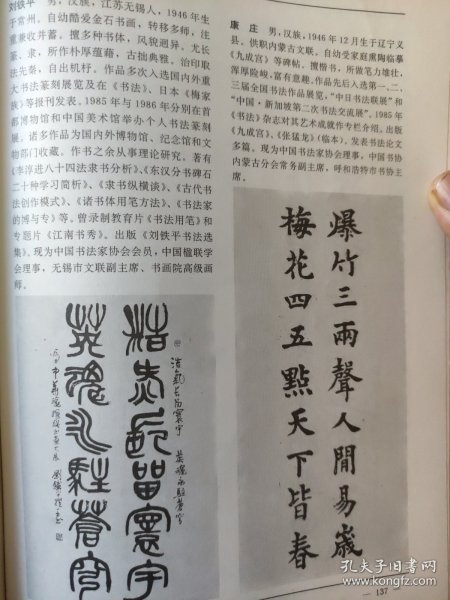 刘铁平 男，汉族，江苏无锡人，1946年生
于常州，自幼酷爱金石书画，转移多师，注
重兼收并蓄。擅多种书体，风貌迥异，尤长
篆、隶，所作朴厚蕴藉，古拙典雅。治印取
法先秦，自出机杼。作品多次入选国内外重
大书法篆刻展览及在《书法》、日本《梅家
族》等报刊发表。1985年与1986年分别在首
都博物馆和中国美术馆举办个人书法篆刻
展。诸多作品为国内外博物馆、纪念馆和文
物部门收藏。作书之余从事理论研究。著有
《李淳进八十四法隶书分析》、《东汉分书碑石
二十种学习简析》、《隶书纵横谈》、《古代书
法创作模式》、《诸体书用笔方法》、《书法家
的博与专》等。曾录制教育片《书法用笔》和
专题片《江南书秀》。出版《刘铁平书法选
集》。现为中国书法家协会会员，中国楹联学
会理事，无锡市文联副主席、书画院高级画
师。
浩气长留寰宇
英魂永驻苍穹
浩气长留寰宇 英魂永驻苍穹
康 庄 男，汉族，1946年12月生于辽宁义
县。供职内蒙古文联。自幼受家庭熏陶临摹
《九成宫》等碑帖。擅楷书，所做笔力雄壮，
浑厚险峻，富有意趣。作品先后入选第一、二、
三届全国书法作品展览，“中日书法联展”和
“中国·新加坡第二次书法交流展”。1985年
《书法》杂志对其艺术成就作专栏介绍。出版
《九成宫》、《张猛龙》（临本）。发表书法论文
多篇。现为中国书法家协会理事，中国书协
内蒙古分会常务副主席，呼和浩特市书协主
席。
爆竹三兩聲人間易歲
梅花四五點天下皆春
— 137 —
孔夫子旧书网
book.kongfz.com